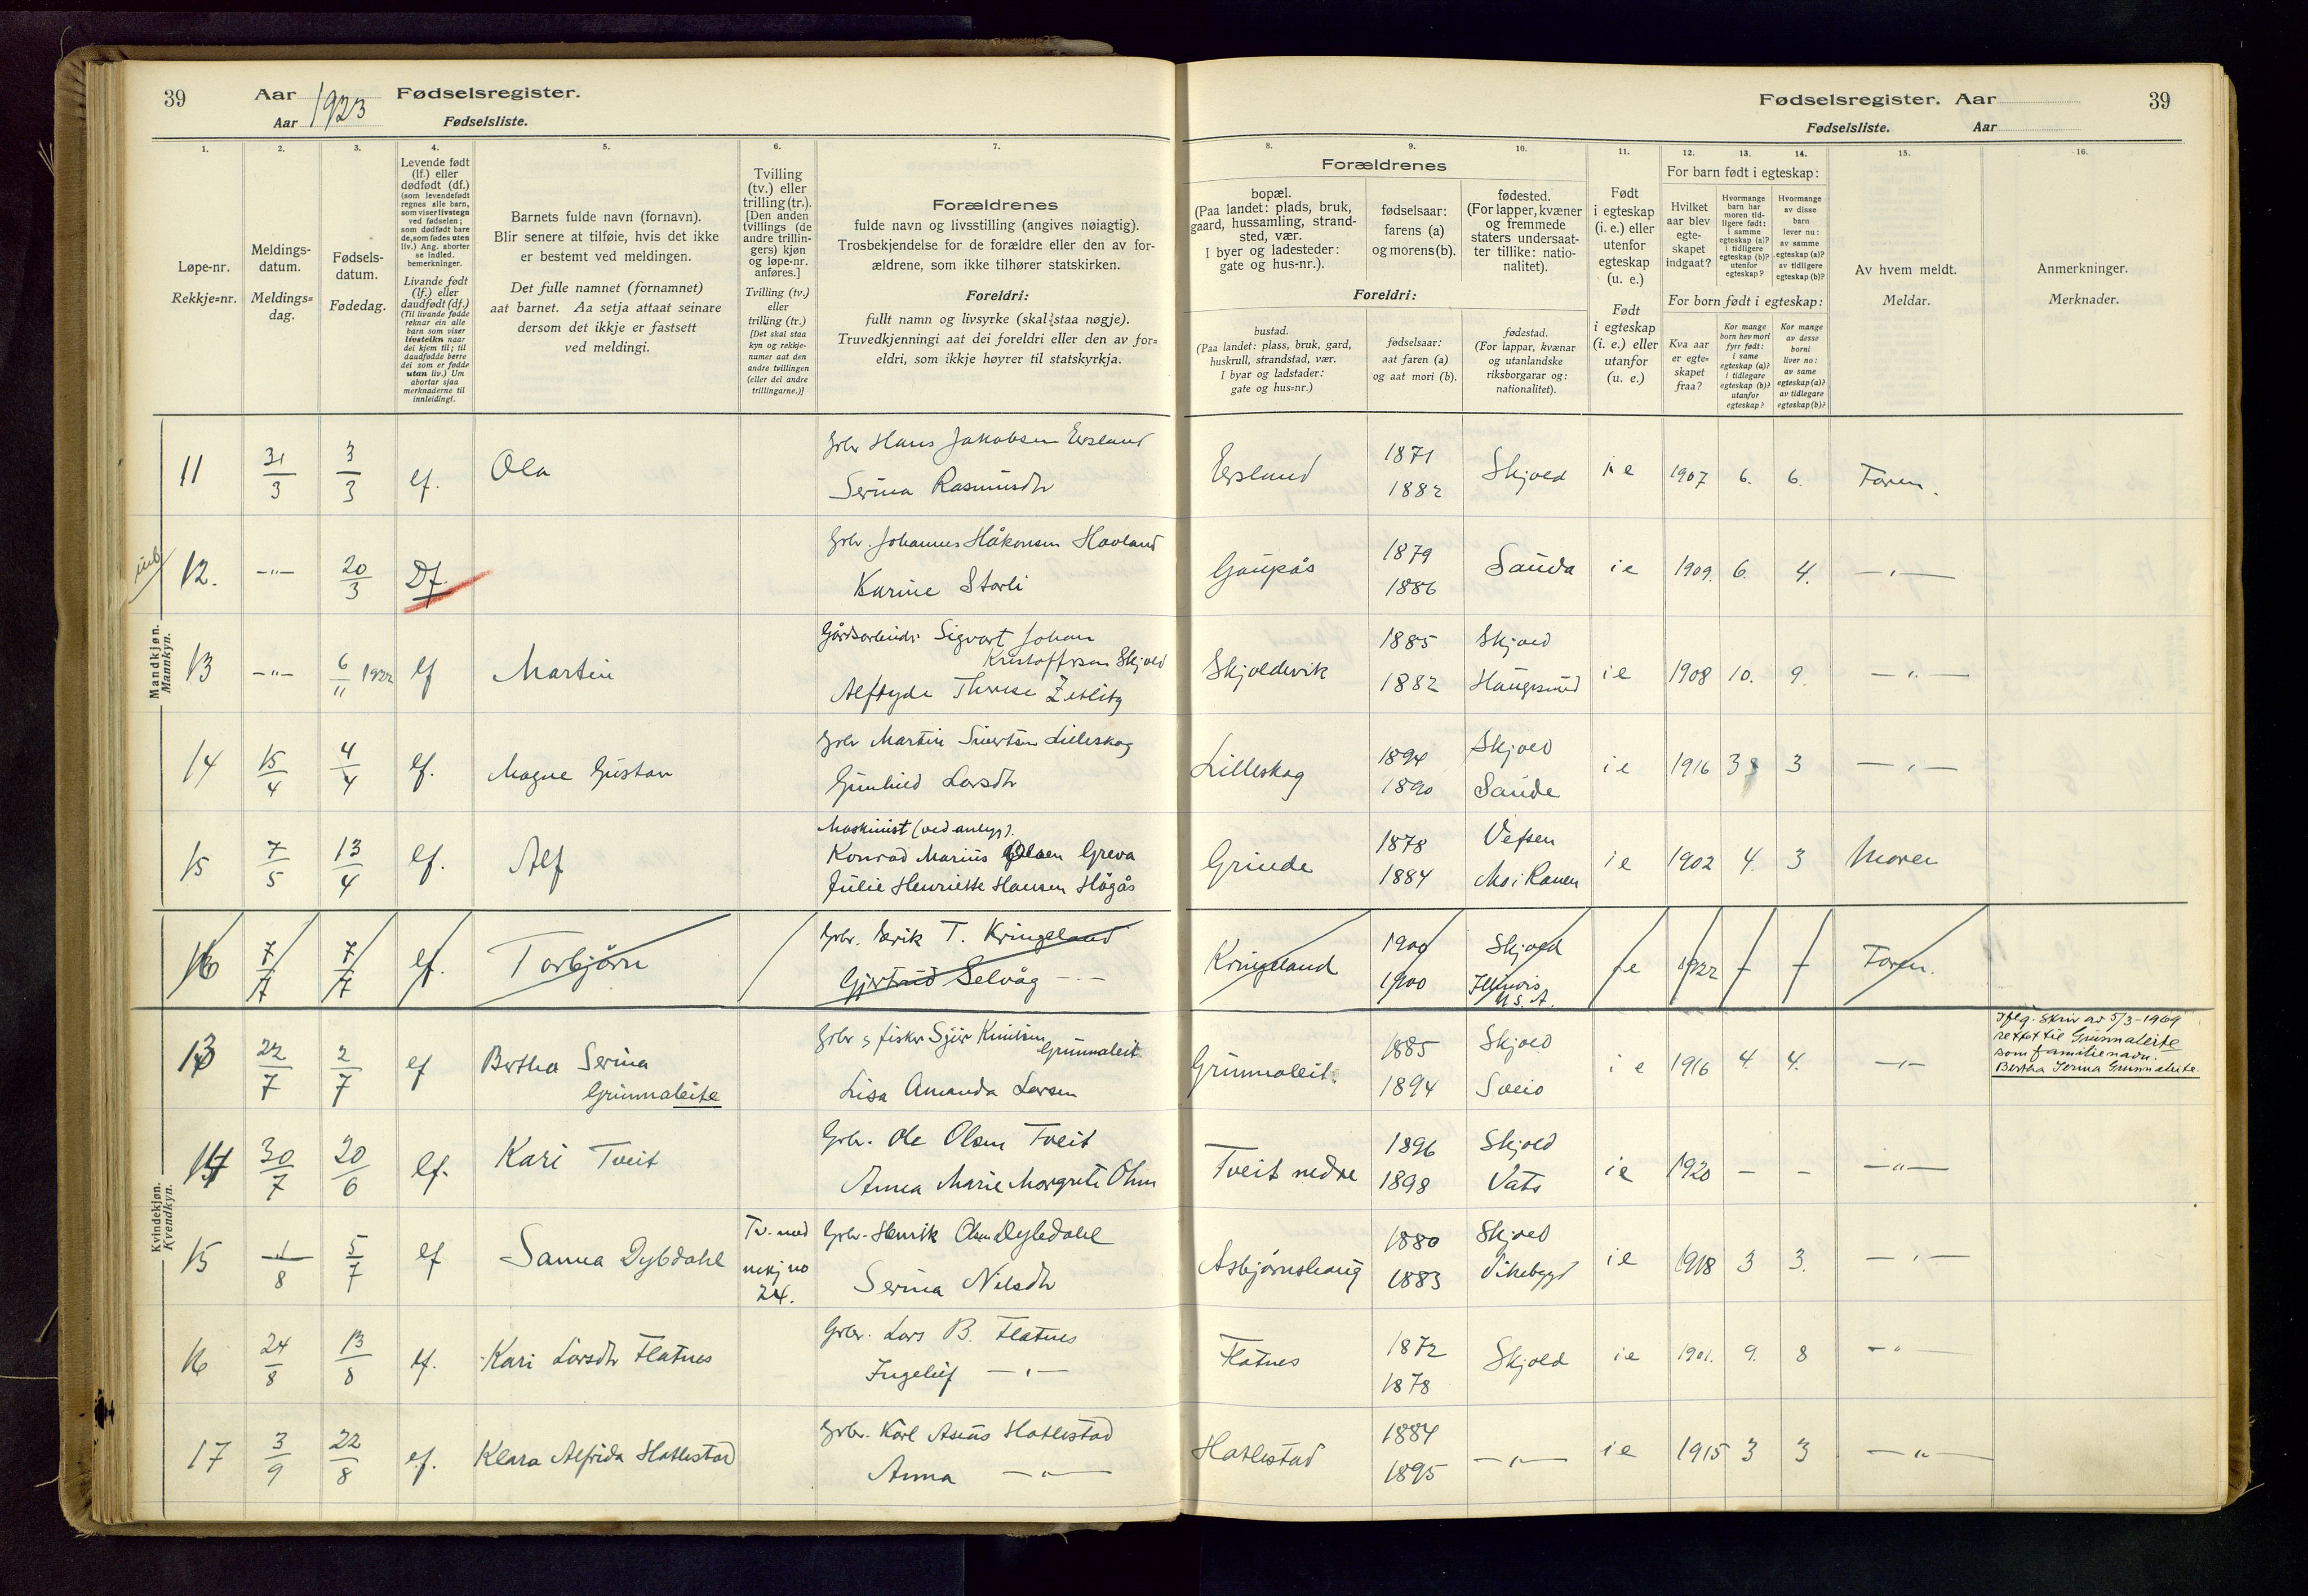 39 Aar 1923 Fødselsregister.
Aar Fødselsliste.
Fødselsregister. Aar 39
Fødselsliste. Aar
1. 2. 3. 4. 5. 6. 7. 8. 9. 10. 11. 12. 13. 14. 15. 16.
Løpe-nr.
Rekkje=nr.
Meldings-
datum.
Meldings=
dag.
Fødsels-
datum.
Fødedag.
Levende født
(lf.) eller
dødfødt (df.)
(som levendefødt
regnes alle barn,
som viser livstegn
ved fødselen;
som dødfødt bare
de, som fødes uten
liv.) Ang. aborter
se indled.
bemerkninger.
Livande født
(lf.) eller
daudfødt (df.)
(Til livande fødde
reknar ein alle
barn som viser
livsteikn naar
dei kjem til; til
daudfødde berre
dei som er fødde
utan liv.) Um
abortar sjaa
merknaderne til
innleidingi.
Barnets fulde navn (fornavn).
Blir senere at tilføie, hvis det ikke
er bestemt ved meldingen.
Det fulle namnet (fornamnet)
aat barnet. Aa setja attaat seinare
dersom det ikkje er fastsett
ved meldingi.
Tvilling
(tv.) eller
trilling (tr.).
[Den anden
tvillings (de
andre trillin-
gers) kjøn
og løpe-nr.
anføres.]
Tvilling (tv.)
eller
trilling (tr.)
[Det skal staa
kyn og rekkje-
numer aat den
andre tvillingen
(eller dei andre
trillingarne.)]
Forældrenes
fulde navn og livsstilling (angives nøiagtig).
Trosbekjendelse for de forældre eller den av for-
ældrene, som ikke tilhører statskirken.
Foreldri:
fullt namn og livsyrke (skal staa nøgje).
Truvedkjenningi aat dei foreldri eller den av for=
eldri, som ikkje høyrer til statskyrkja.
Forældrenes
bopæl.
(Paa landet: plads, bruk,
gaard, hussamling, strand-
sted, vær.
I byer og ladesteder:
gate og hus-nr.).
fødselsaar:
farens (a)
og morens (b).
fødested.
(For lapper, kvæner
og fremmede
staters undersaat-
ter tillike: natio-
nalitet).
Foreldri:
bustad.
(Paa landet: plass, bruk, gard,
huskrull, strandstad, vær.
I byar og ladstader:
gate og hus=nr.)
fødselsaar:
aat faren (a)
og aat mori (b).
fødestad.
(For lappar, kvænar
og utanlandske
riksborgarar og:
nationalitet).
Født
i egteskap
(i. e.) eller
utenfor
egteskap
(u. e.)
Født
i egteskap
(i. e.) eller
utanfor
(u. e.)
For barn født i egteskap:
Hvilket
aar blev
egte-
skapet
indgaat?
Hvormange
barn har
moren tid-
ligere født:
i samme
egteskap (a)?
i tidligere
egteskap (b)?
utenfor
egteskap?
Hvormange
av disse
barn
lever nu:
av samme
egteskap (a)?
av tidligere
egteskap (b)?
For born født i egteskap:
Kva aar
er egte=
skapet
fraa?
Kor mange
born hev mori
fyrr født:
i same
egteskap (a)?
i tidlegare
egteskap (b)?
utanfor
egteskap?
Kor mange
av desse
borni
liver no:
av same
egteskap (a)?
av tidlegare
egteskap (b)?
Av hvem meldt.
Meldar.
Anmerkninger.
Merknader.
Mandkjøn.
Mannkyn.
11 31/3 3/3 lf. Ola Gbr Hans Jakobsen Ersland
Serina Rasmusdtr
Ersland 1871 1882 Skjold i e 1907 6. 6. Faren.
12. —"— 20/3 Df. Gbr. Johannes Håkonsen Hovland
Karine Storli
Gaupås 1879 1886 Sauda i e 1909. 6. 4. —"—
13 —"— 6/11 1922 lf Martin Gårdsarbeidr. Sigvart Johan
Kristoffersen Skjold
Zetlitz
Skjoldevik 1885 1882 Skjold Haugesund i e 1908 10. 9. —"—
14 15/4 4/4 lf. Magne Gustav Gbr Martin Sivertsen Lilleskog
Gunhild Larsdtr
Lilleskog 1894 1890 Skjold Saude i e 1916 3 3 —"—
15 7/5 13/4 lf. Alf Maskinist (ved anlegg).
Konrad Marius Olsen Greva
Julie Henriette Hansen Hågås
Grinde 1878 1884 Vefsen Mo i Ranen i e 1902 4. 3 Moren
16 7/7 7/7 lf. Torbjørn Gbr. Erik T. Kringeland
Gjertrud Selvåg —"—
Kringeland 1900 1900 Skjold Illinois U.S.A. i e 1922 – – Faren.
Kvindekjøn.
Kvendkyn.
13 22/7 2/7 lf Bertha Serina
Grunnaleite
Gbr & fisker Sjur Knutsen
Grunnaleit
Lisa Amanda Larsen
Grunnaleit. 1885 1894 Skjold Sveio i e 1916 4. 4. —"—
Iflg. skriv av 5/3-1969
rettet til Grunnaleite
som familienavn.
Bertha Serina Grunnaleite.
14 30/7 20/6 lf. Kari Tveit Gbr. Ole Olsen Tveit
Anna Marie Margrete Olsen
Tveit nedre 1896 1898 Skjold Vats i e 1920 – – —"—
15 1/8 5/7 lf Sanna Dybdahl Tv. med
rekj no
24.
Gbr. Henrik Olsen Dybdahl
Serina Nilsdtr
Asbjørnshaug 1880 1883 Skjold Vikebygd i e 1918 3 3. —"—
16 24/8 13/8 lf. Kari Larsdtr Flatnes Gbr. Lars B. Flatnes
Ingelief —"—
Flatnes 1872 1878 Skjold i e 1901. 9. 8 —"—
17 3/9 22/8 lf. Klara Alfrida Hatlestad Gbr. Karl Aseus Hatlestad
Anna —"—
Hatlestad 1884 1895 —"— i e 1915 3 3 —"—